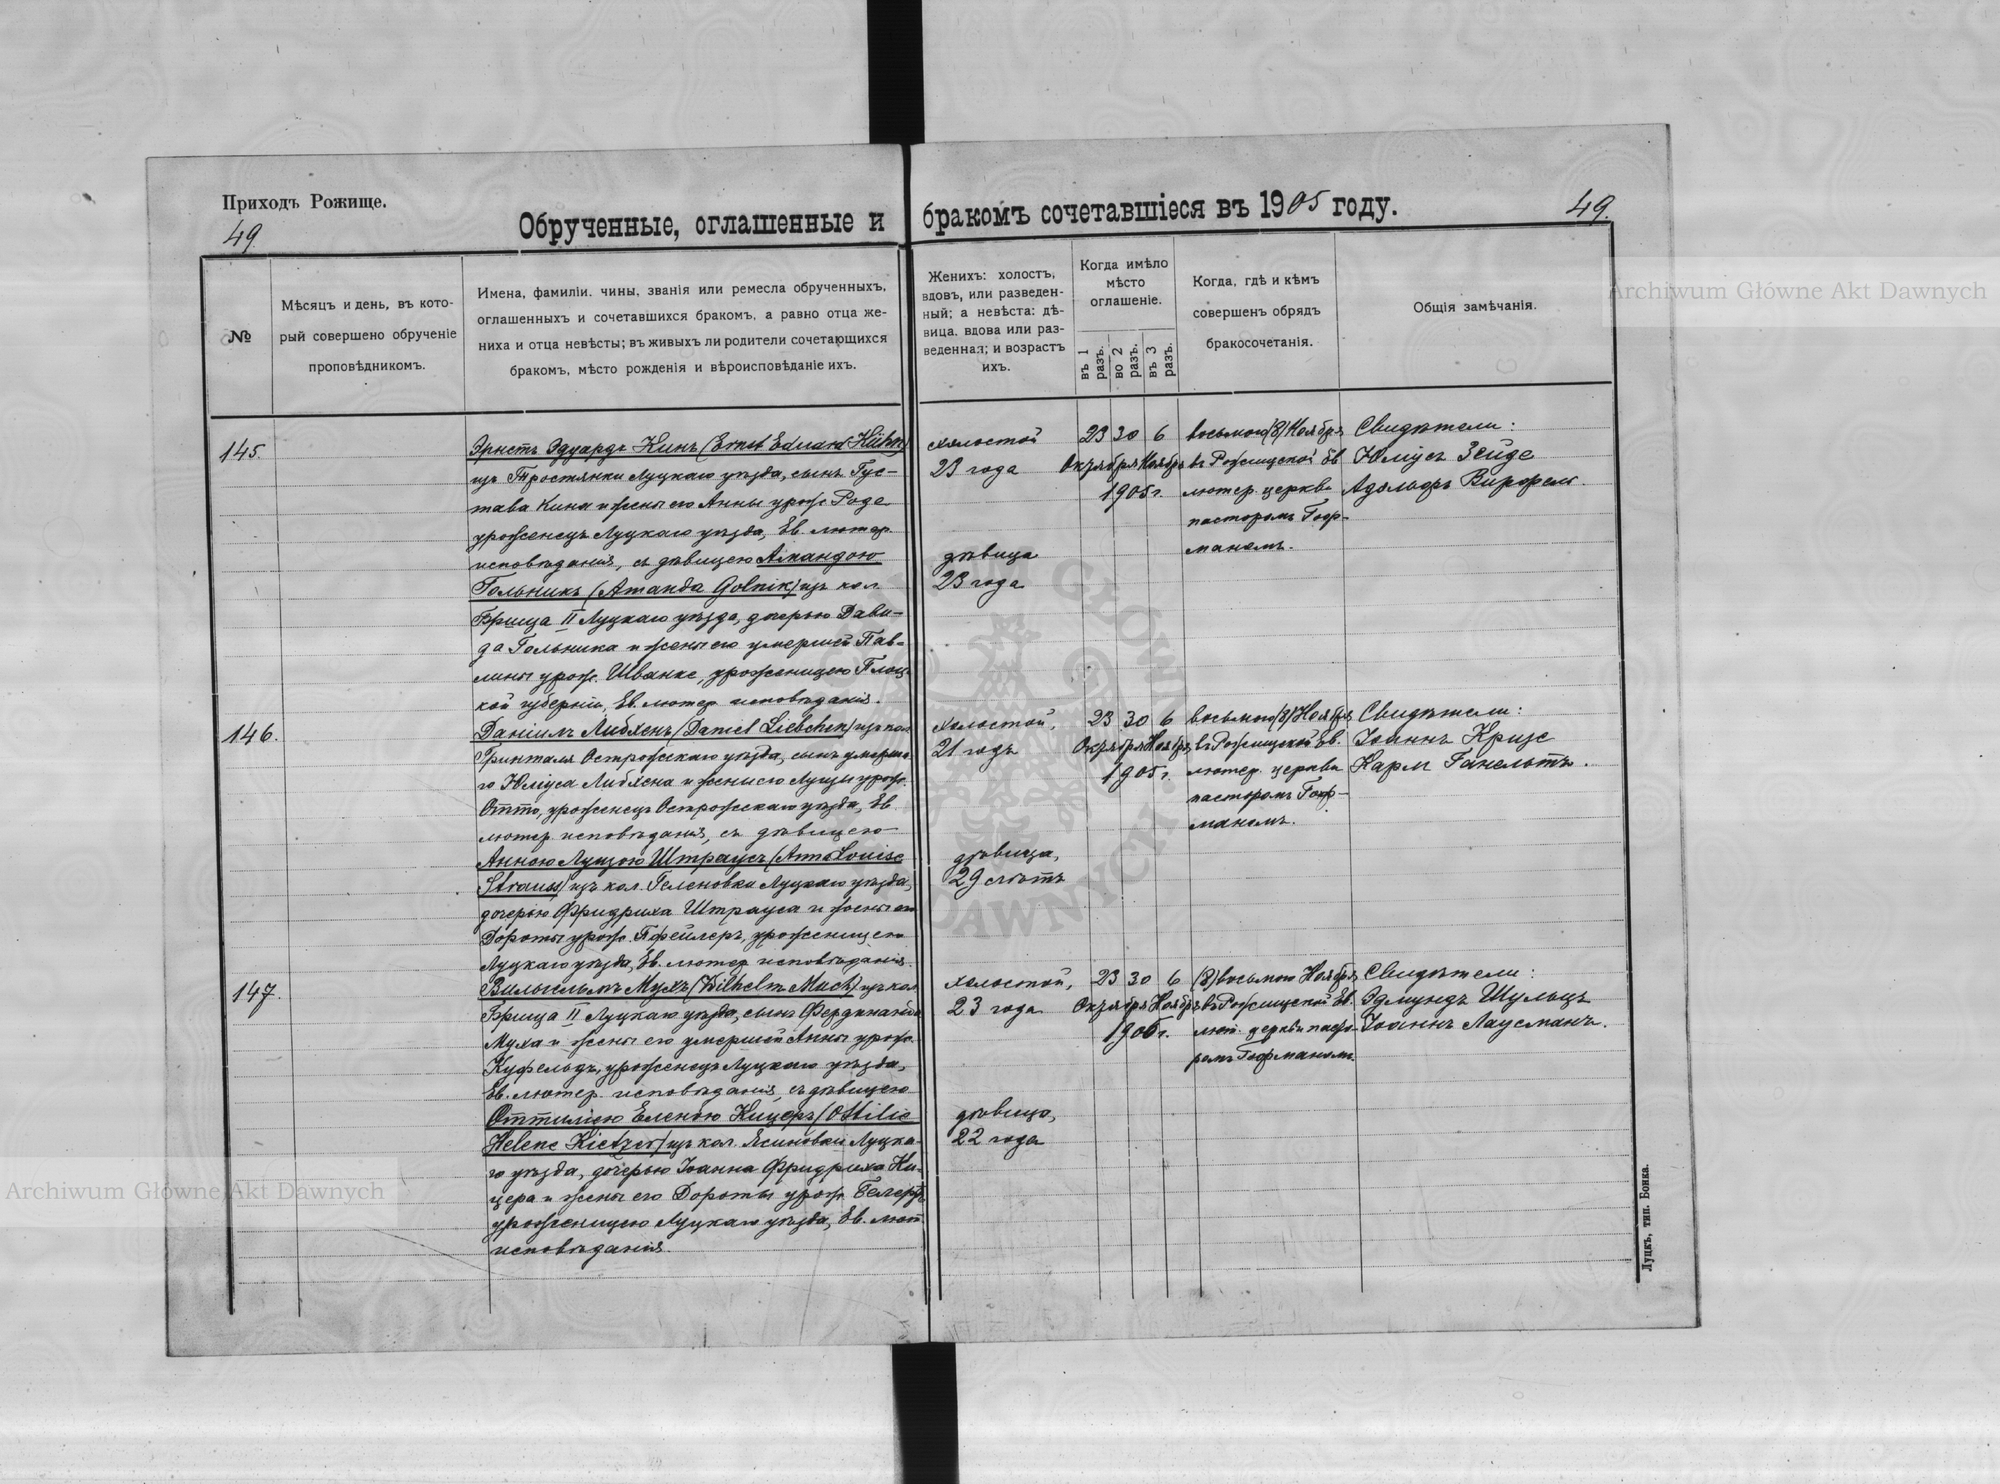 Приходъ Рожище.
49
Обрученные, оглашенные и бракомъ сочетавшіеся въ 1905 году.
49.
№
Мѣсяцъ и день, въ кото-
рый совершено обрученіе
проповѣдникомъ.
Имена, фамиліи, чины, званія или ремесла обрученныхъ,
оглашенныхъ и сочетавшихся бракомъ, а равно отца же-
ниха и отца невѣсты; въ живыхъ ли родители сочетающихся
бракомъ, мѣсто рожденія и вѣроисповѣданіе ихъ.
Женихъ: холостъ,
вдовъ, или разведен-
ный; а невѣста: дѣ-
вица, вдова или раз-
веденная; и возрастъ
ихъ.
Когда имѣло
мѣсто
оглашеніе.
въ 1 разъ.
во 2 разъ.
въ 3 разъ.
Когда, гдѣ и кѣмъ
совершенъ обрядъ
бракосочетанія.
Общія замѣчанія.
145.
Эрнстъ Эдуардъ Кинъ (Ernst Eduard Kühn)
изъ Тростянки Луцкаго уѣзда, сынъ Гус-
тава Кина и жены его Анны урож. Роде
уроженецъ Луцкаго уѣзда, Ев. лютер.
исповѣданія, съ дѣвицею Амандою
Гольникъ (Amanda Golnik) изъ кол.
Брища II Луцкаго уѣзда, дочерью Дави-
да Гольника и жены его умершей Пав-
лины урож. Шванке, уроженицею Плоц-
кой губерніи, Ев. лютер. исповѣданія.
холостой
23 года
дѣвица
23 года
23 30 6
Октября Ноября
1905 г.
восьмого (8) Ноября
въ Рожищской Ев.
лютер. церкви
пасторомъ Гоф-
маномъ.
Свидѣтели:
Юліусъ Зейде
Адольфъ Вирфель.
146.
Даніилъ Либхенъ (Daniel Liebchen) изъ кол.
Гринталя Острожскаго уѣзда, сынъ умерша-
го Юліуса Либхена и жены его Луизы урож.
Отто, уроженецъ Острожскаго уѣзда, Ев.
лютер. исповѣданія, съ дѣвицею
Анною Луизою Штраусъ (Anna Louise
Strauss) изъ кол. Геленовки Луцкаго уѣзда,
дочерью Фридриха Штрауса и жены его
Дороты урож. Пфейлеръ, уроженицею
Луцкаго уѣзда, Ев. лютер. исповѣданія.
холостой,
21 годъ
дѣвица,
29 лѣтъ
23 30 6
Октября Ноября
1905 г.
восьмого (8) Ноября
въ Рожищской Ев.
лютер. церкви
пасторомъ Гоф-
маномъ.
Свидѣтели:
Іоаннъ Кризе
Карл Ганельтъ.
147.
Вильгельмъ Мухъ (Wilhelm Much) изъ кол.
Брища II Луцкаго уѣзда, сынъ Фердинанда
Муха и жены его умершей Анны урож.
Куфельдъ, уроженецъ Луцкаго уѣзда,
Ев. лютер. исповѣданія, съ дѣвицею
Оттиліею Еленою Кицеръ (Ottilie
Helene Kietzer) изъ кол. Ясиновки Луцка-
го уѣзда, дочерью Іоанна Фридриха Ки-
цера и жены его Дороты урож.
уроженицею Луцкаго уѣзда, Ев. лют.
исповѣданія.
холостой,
23 года
дѣвица,
22 года
23 30 6
Октября Ноября
1905 г.
(8) восьмого Ноября
въ Рожищской Ев.
лют. церкви пасто-
ромъ Гофманомъ
Свидѣтели:
Эдмундъ Шульцъ
Іоаннъ Лаусманъ.
Луцкъ, тип. Бонка.
Archiwum Główne Akt Dawnych
Archiwum Główne Akt Dawnych